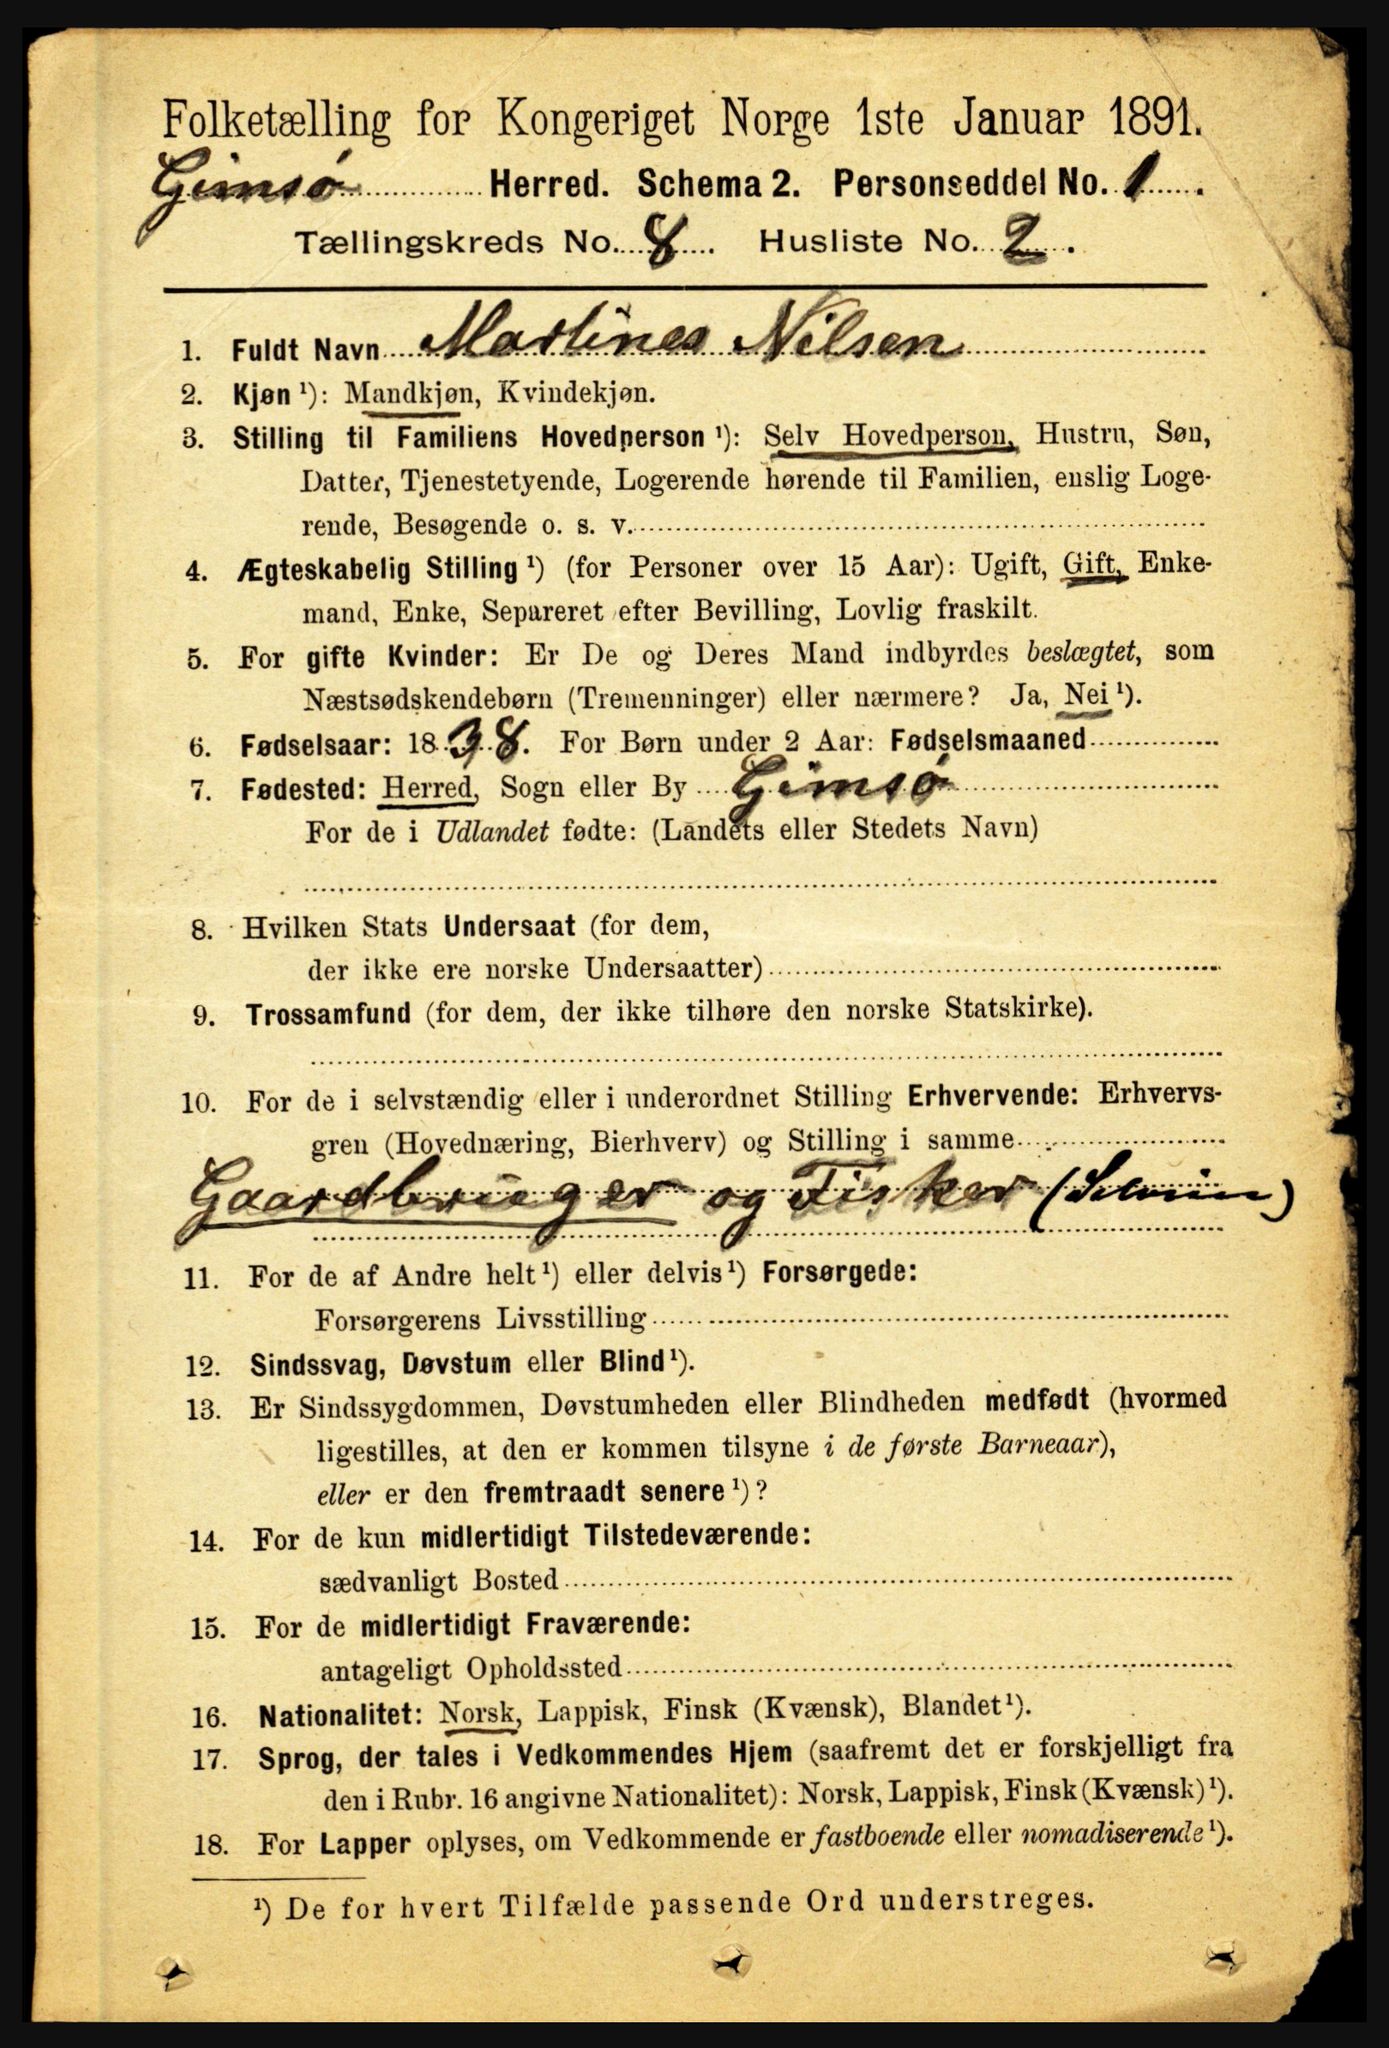 Folketælling for Kongeriget Norge 1ste Januar 1891.
Gimsø Herred. Schema 2. Personseddel No. 1.
Tællingskreds No. 8. Husliste No. 2.
1. Fuldt Navn Martines Nilsen
2. Kjøn ¹): Mandkjøn, Kvindekjøn.
3. Stilling til Familiens Hovedperson ¹): Selv Hovedperson, Hustru, Søn,
Datter, Tjenestetyende, Logerende hørende til Familien, enslig Loge-
rende, Besøgende o. s. v.
4. Ægteskabelig Stilling ¹) (for Personer over 15 Aar): Ugift, Gift, Enke-
mand, Enke, Separeret efter Bevilling, Lovlig fraskilt.
5. For gifte Kvinder: Er De og Deres Mand indbyrdes beslægtet, som
Næstsødskendebørn (Tremenninger) eller nærmere? Ja, Nei ¹).
6. Fødselsaar: 1838. For Børn under 2 Aar: Fødselsmaaned
7. Fødested: Herred, Sogn eller By Gimsø
For de i Udlandet fødte: (Landets eller Stedets Navn)
8. Hvilken Stats Undersaat (for dem,
der ikke ere norske Undersaatter)
9. Trossamfund (for dem, der ikke tilhøre den norske Statskirke).
10. For de i selvstændig eller i underordnet Stilling Erhvervende: Erhvervs-
gren (Hovednæring, Bierhverv) og Stilling i samme
Gaardbruger og Fisker
11. For de af Andre helt ¹) eller delvis ¹) Forsørgede:
Forsørgerens Livsstilling
12. Sindssvag, Døvstum eller Blind ¹).
13. Er Sindssygdommen, Døvstumheden eller Blindheden medfødt (hvormed
ligestilles, at den er kommen tilsyne i de første Barneaar),
eller er den fremtraadt senere ¹)?
14. For de kun midlertidigt Tilstedeværende:
sædvanligt Bosted
15. For de midlertidigt Fraværende:
antageligt Opholdssted
16. Nationalitet: Norsk, Lappisk, Finsk (Kvænsk), Blandet ¹).
17. Sprog, der tales i Vedkommendes Hjem (saafremt det er forskjelligt fra
den i Rubr. 16 angivne Nationalitet): Norsk, Lappisk, Finsk (Kvænsk) ¹).
18. For Lapper oplyses, om Vedkommende er fastboende eller nomadiserende ¹).
¹) De for hvert Tilfælde passende Ord understreges.